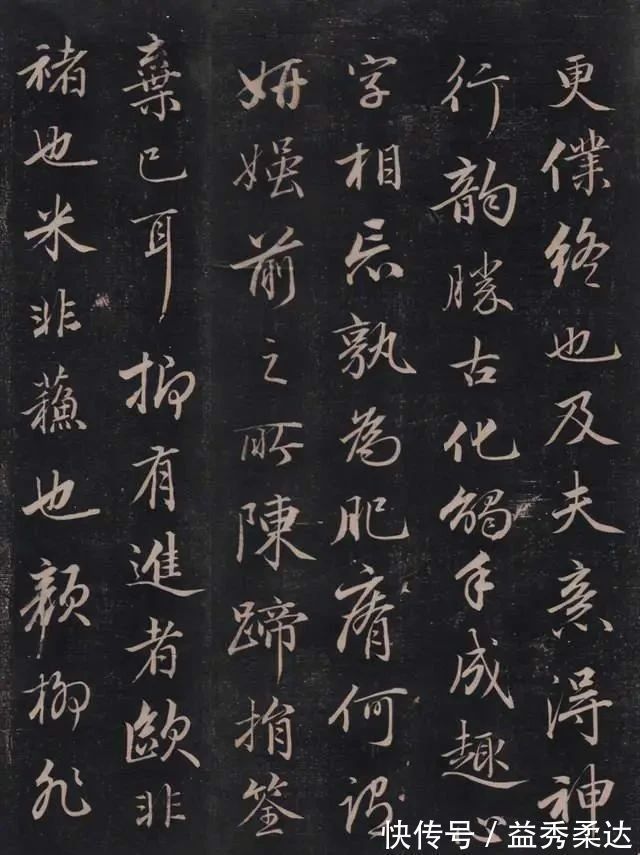 更僕終也及夫意得神
行韵勝古化觸手成趣心
字相忘孰為肥瘠何謂
妍媸前之所陳蹄捐筌
棄已耳抑有進者歐非
褚也米非蘇也顏柳非
快传号/益秀柔达